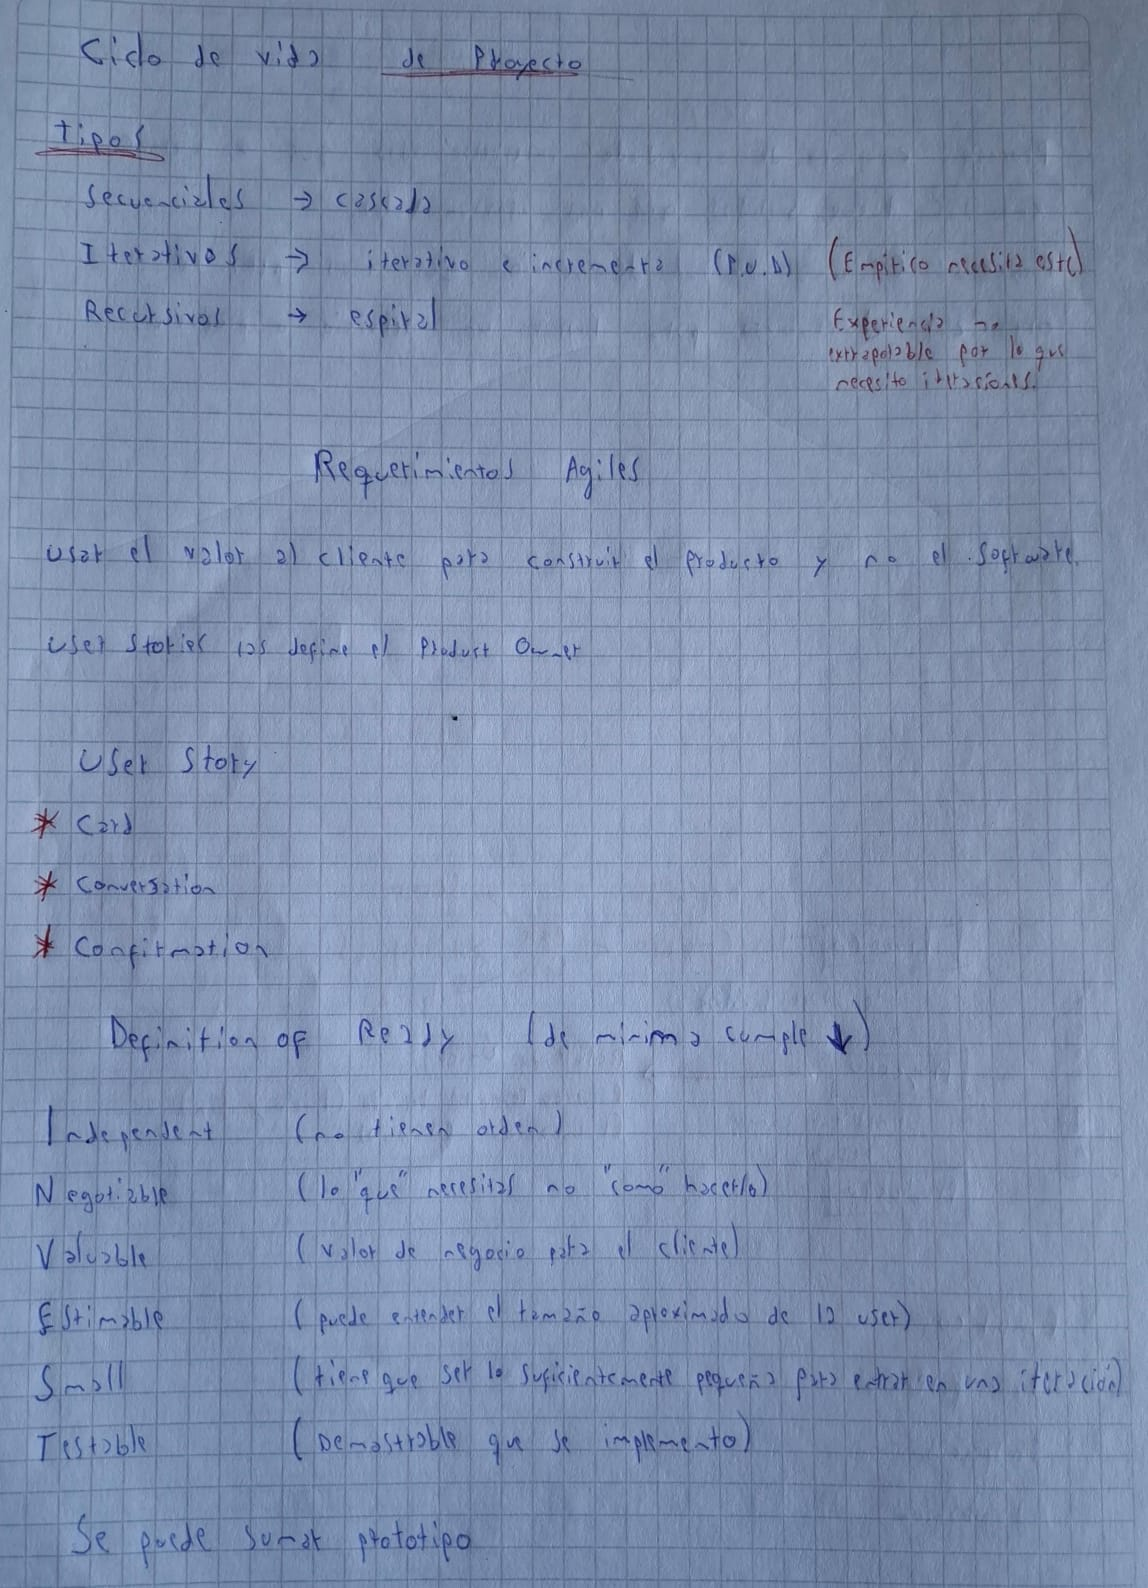 Ciclo de vida de Proyecto
tipos
Secuenciales → cascada
Iterativos → iterativo e incrementa (P.U.D) (Empirico necesita este)
Recursivos → espiral
Experiencia no
extrapolable por lo que
necesito iterasiones.
Requerimientos Agiles
Usar el valor al cliente para construir el producto y no el sofware.
User Stories las define el Product Owner
User Story
* Card
* Conversation
* Confirmation
Definition of Ready (de minima cumple ↓)
Independent (no tienen orden)
Negotiable (lo "que" necesitas no "como" hacerlo)
Valuable (valor de negocio para el cliente)
Estimable (puede entender el tamaño aproximado de la user)
Small (tiene que ser lo suficientemente pequeña para entrar en una iteración)
Testable (Demostrable que se implemento)
Se puede sumar prototipo